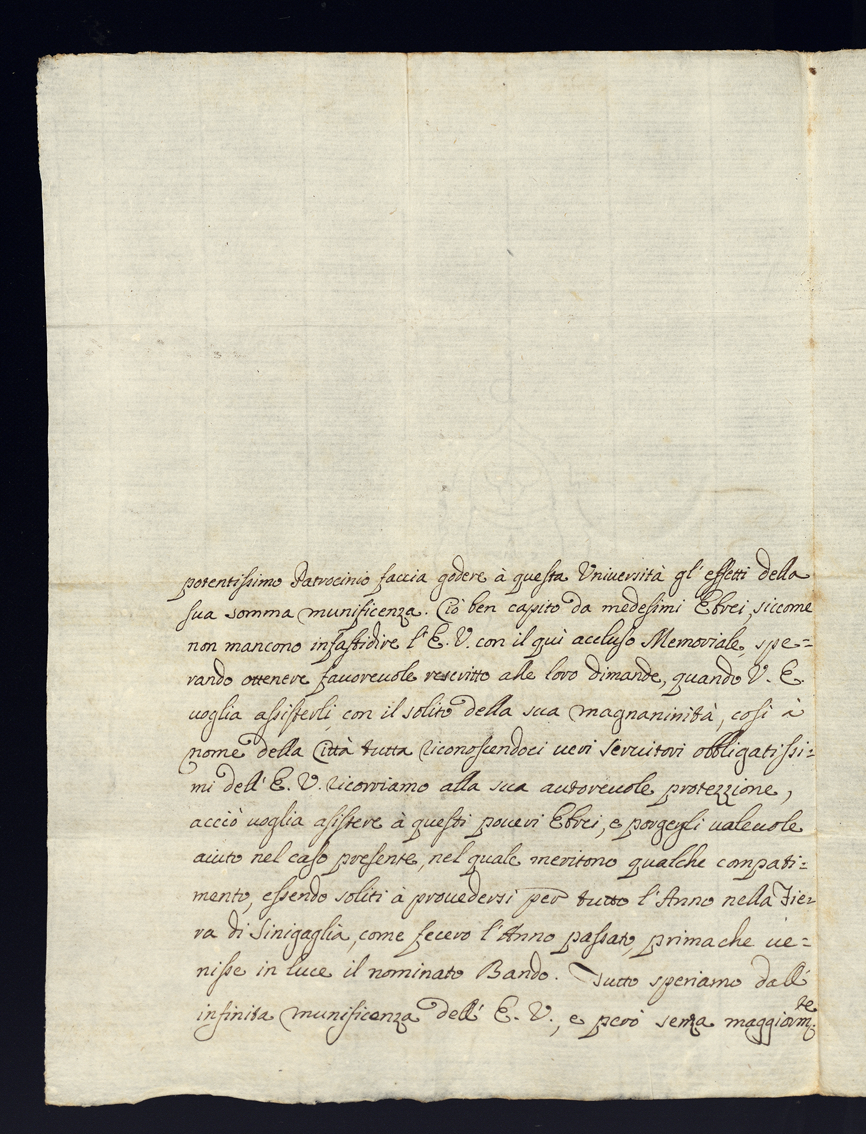 potentissimo Patrocinio faccia godere à questa Università gl'effetti della
sua somma munificenza. Ciò ben capito da medesimi Ebrei, siccome
non mancono infastidire l'E. V. con il quì accluso Memoriale, spe=
rando ottenere favorevole rescritto alle loro dimande, quando V. E.
voglia assisterli con il solito della sua magnaninità, così à
nome della Città tutta riconoscendoci veri servitori obbligatissi=
mi dell'E. V. ricorriamo alla sua autorevole protezzione,
acciò voglia assistere à questi poveri Ebrei, e porgegli valevole
aiuto nel caso presente, nel quale meritono qualche compati=
mento, essendo soliti à provedersi per tutto l'Anno nella Fie=
ra di Sinigaglia, come fecero l'Anno passato, prima che ve=
nisse in luce il nominato Bando. Tutto speriamo dall'
infinita munificenza dell'E. V., e però senza maggiorm.te